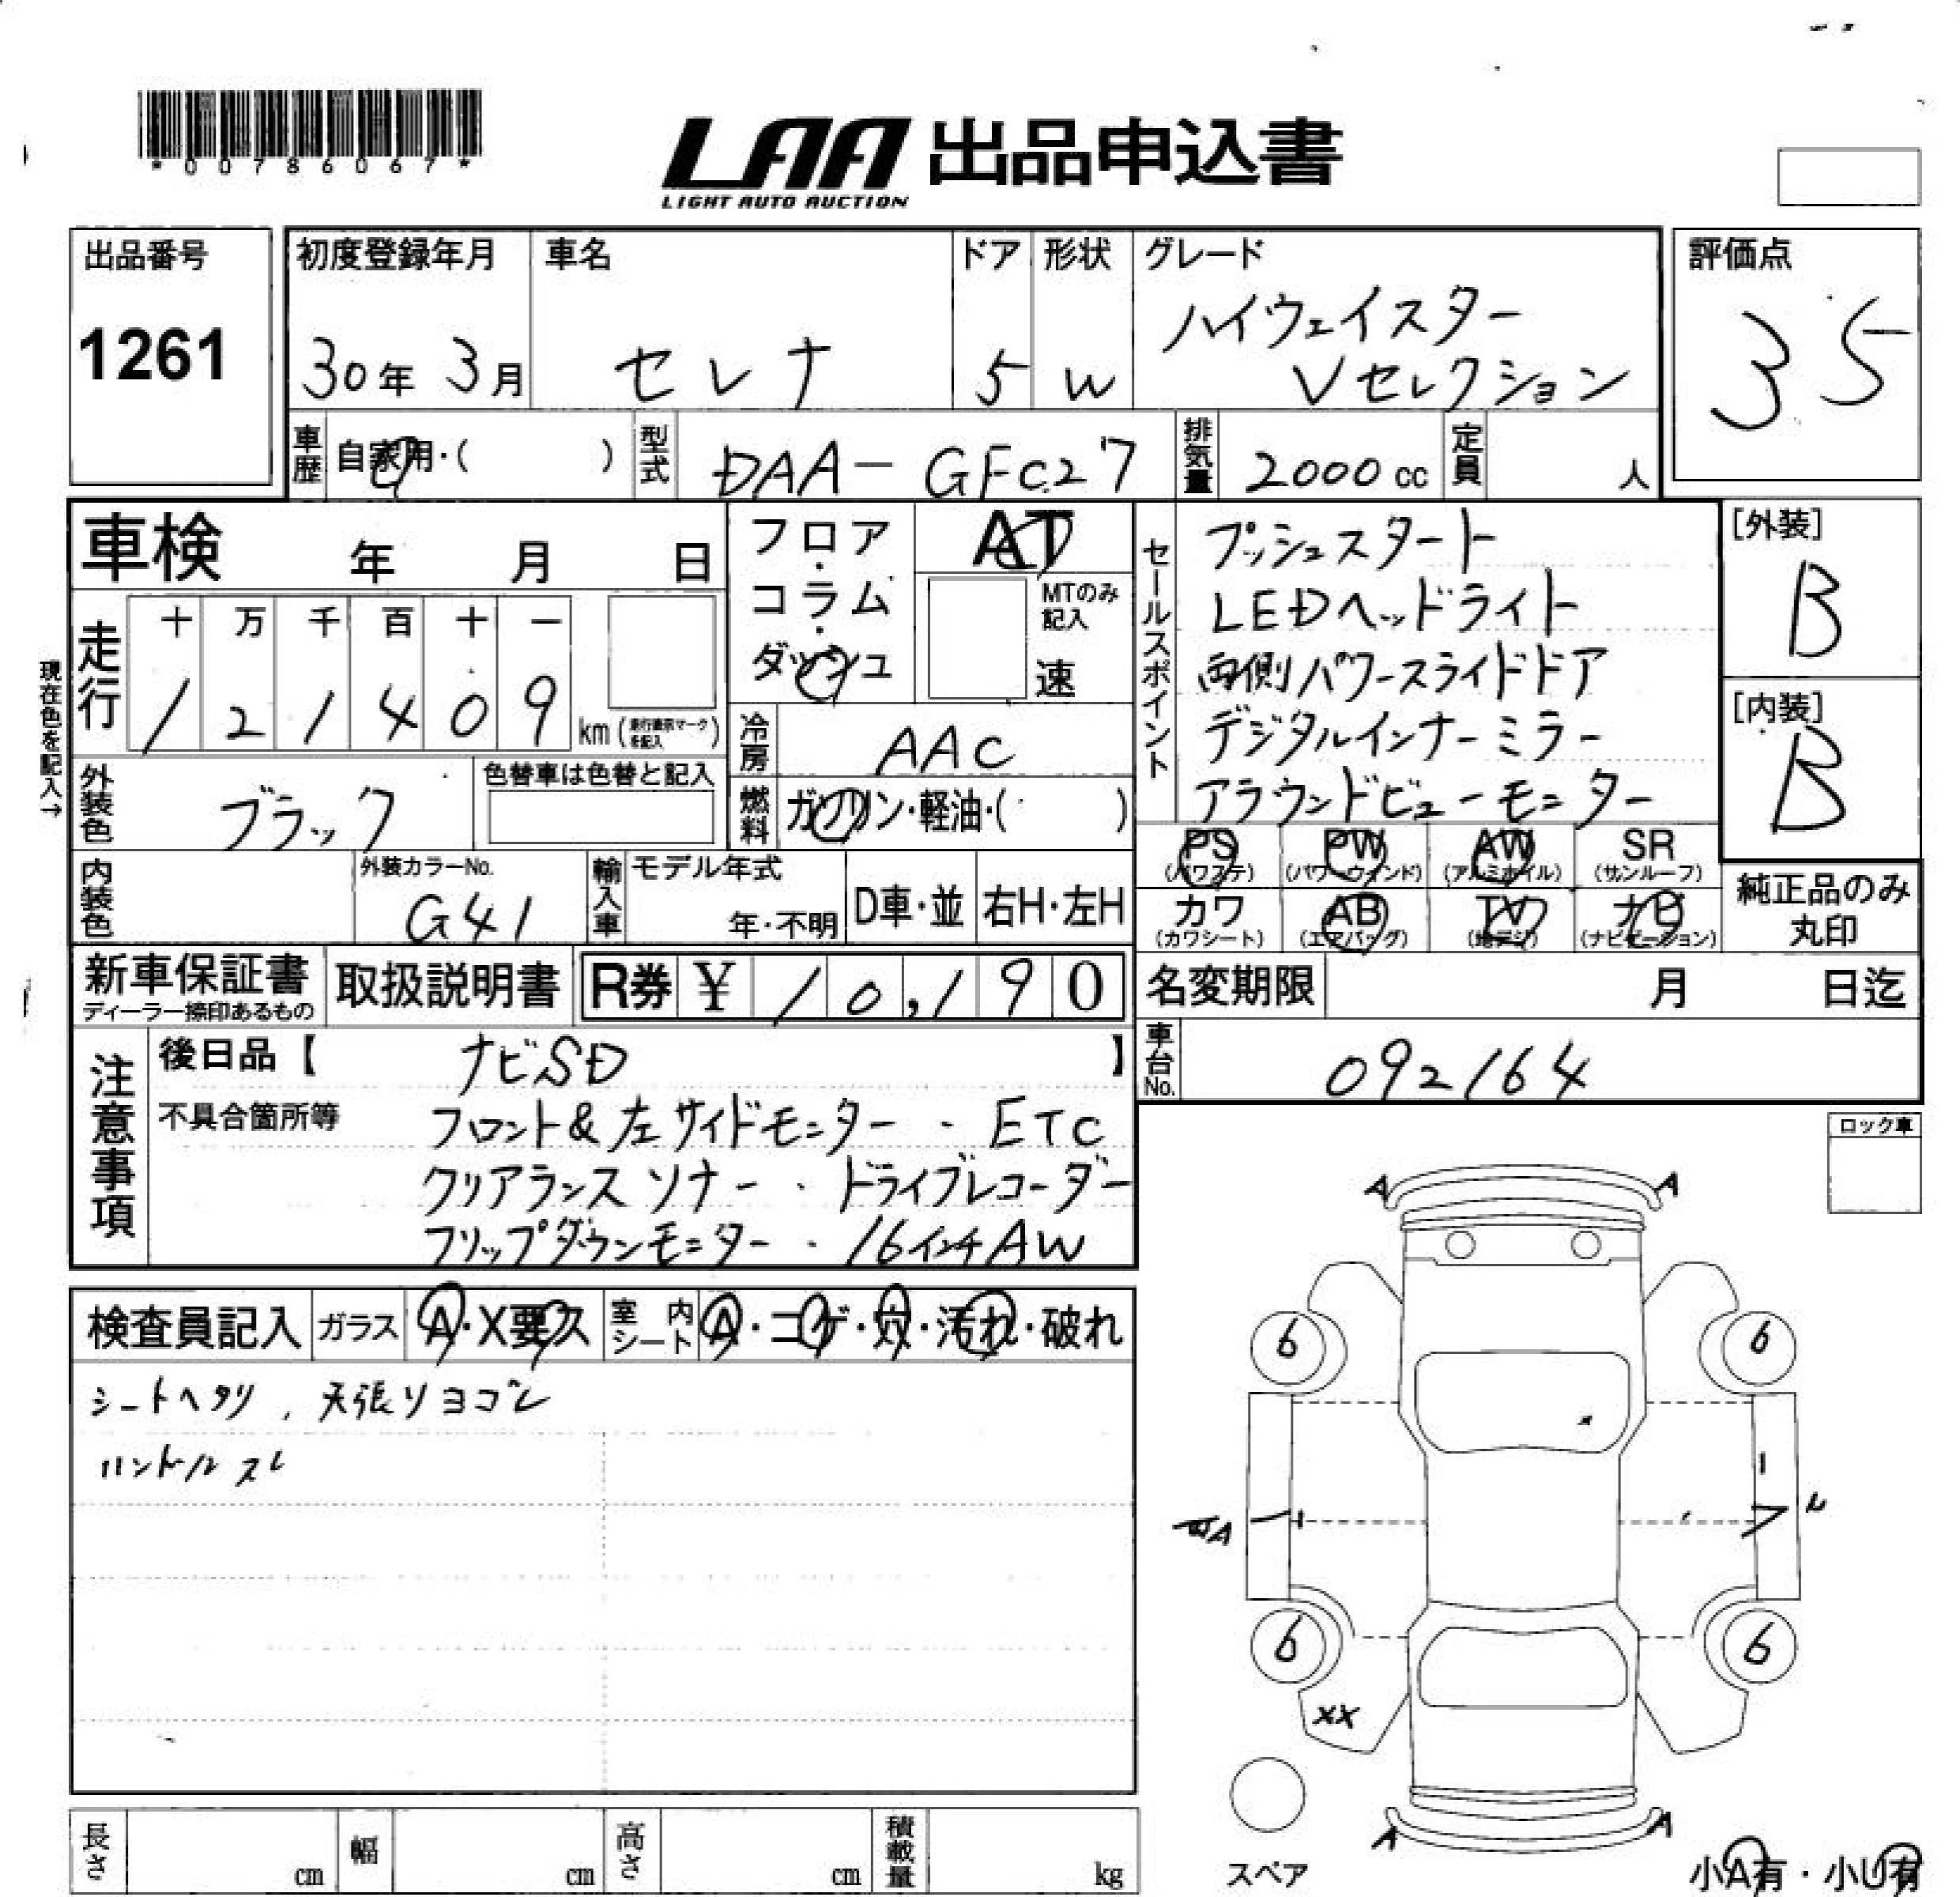 *00786067*
LAA 出品申込書
LIGHT AUTO AUCTION
出品番号
1261
初度登録年月
30年 3月
車名
セレナ
ドア
5
形状
W
グレード
ハイウェイスター
Vセレクション
評価点
35
車歴 自家用・( )
型式 DAA-GFC27
排気量 2000 cc
定員 人
車検 年 月 日
フロア・コラム・ダッシュ
AT
MTのみ記入
速
セールスポイント
プッシュスタート
LEDヘッドライト
両側パワースライドドア
デジタルインナーミラー
アラウンドビューモニター
[外装]
B
[内装]
B
現在色を記入→
走行
十 万 千 百 十 一
1 2 1 4 0 9 km
冷房 AAC
外装色 ブラック
色替車は色替と記入
燃料 ガソリン・軽油・( )
PS PW AW SR
(パワステ) (パワーウィンド) (アルミホイル) (サンルーフ)
カワ AB TV ナビ
(カワシート) (エアバッグ) (地デジ) (ナビゲーション)
純正品のみ
丸印
内装色
外装カラーNo.
G41
輸入車
モデル年式
年・不明
D車・並
右H・左H
新車保証書
ディーラー捺印あるもの
取扱説明書
R券 ¥ 10,190
名変期限 月 日迄
車台No. 092164
注意事項
後日品【 ナビSD 】
不具合箇所等
フロント&左サイドモニター ・ ETC
クリアランスソナー ・ ドライブレコーダー
フリップダウンモニター ・ 16インチAW
ロック車
検査員記入
ガラス A・X要ス
室内シート A・コゲ・穴・汚れ・破れ
シートヘタリ , 天張リヨゴレ
ハンドルスレ
A A
6 6
A
6 6
XX
A A
スペア
小A有・小U有
長さ cm
幅 cm
高さ cm
積載量 kg